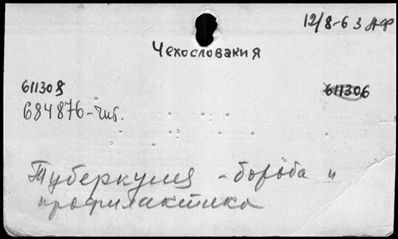 12/8-63 НФ
Чехословакия
611308 611306
684876-чит.
Туберкулез - борьба и
профилактика